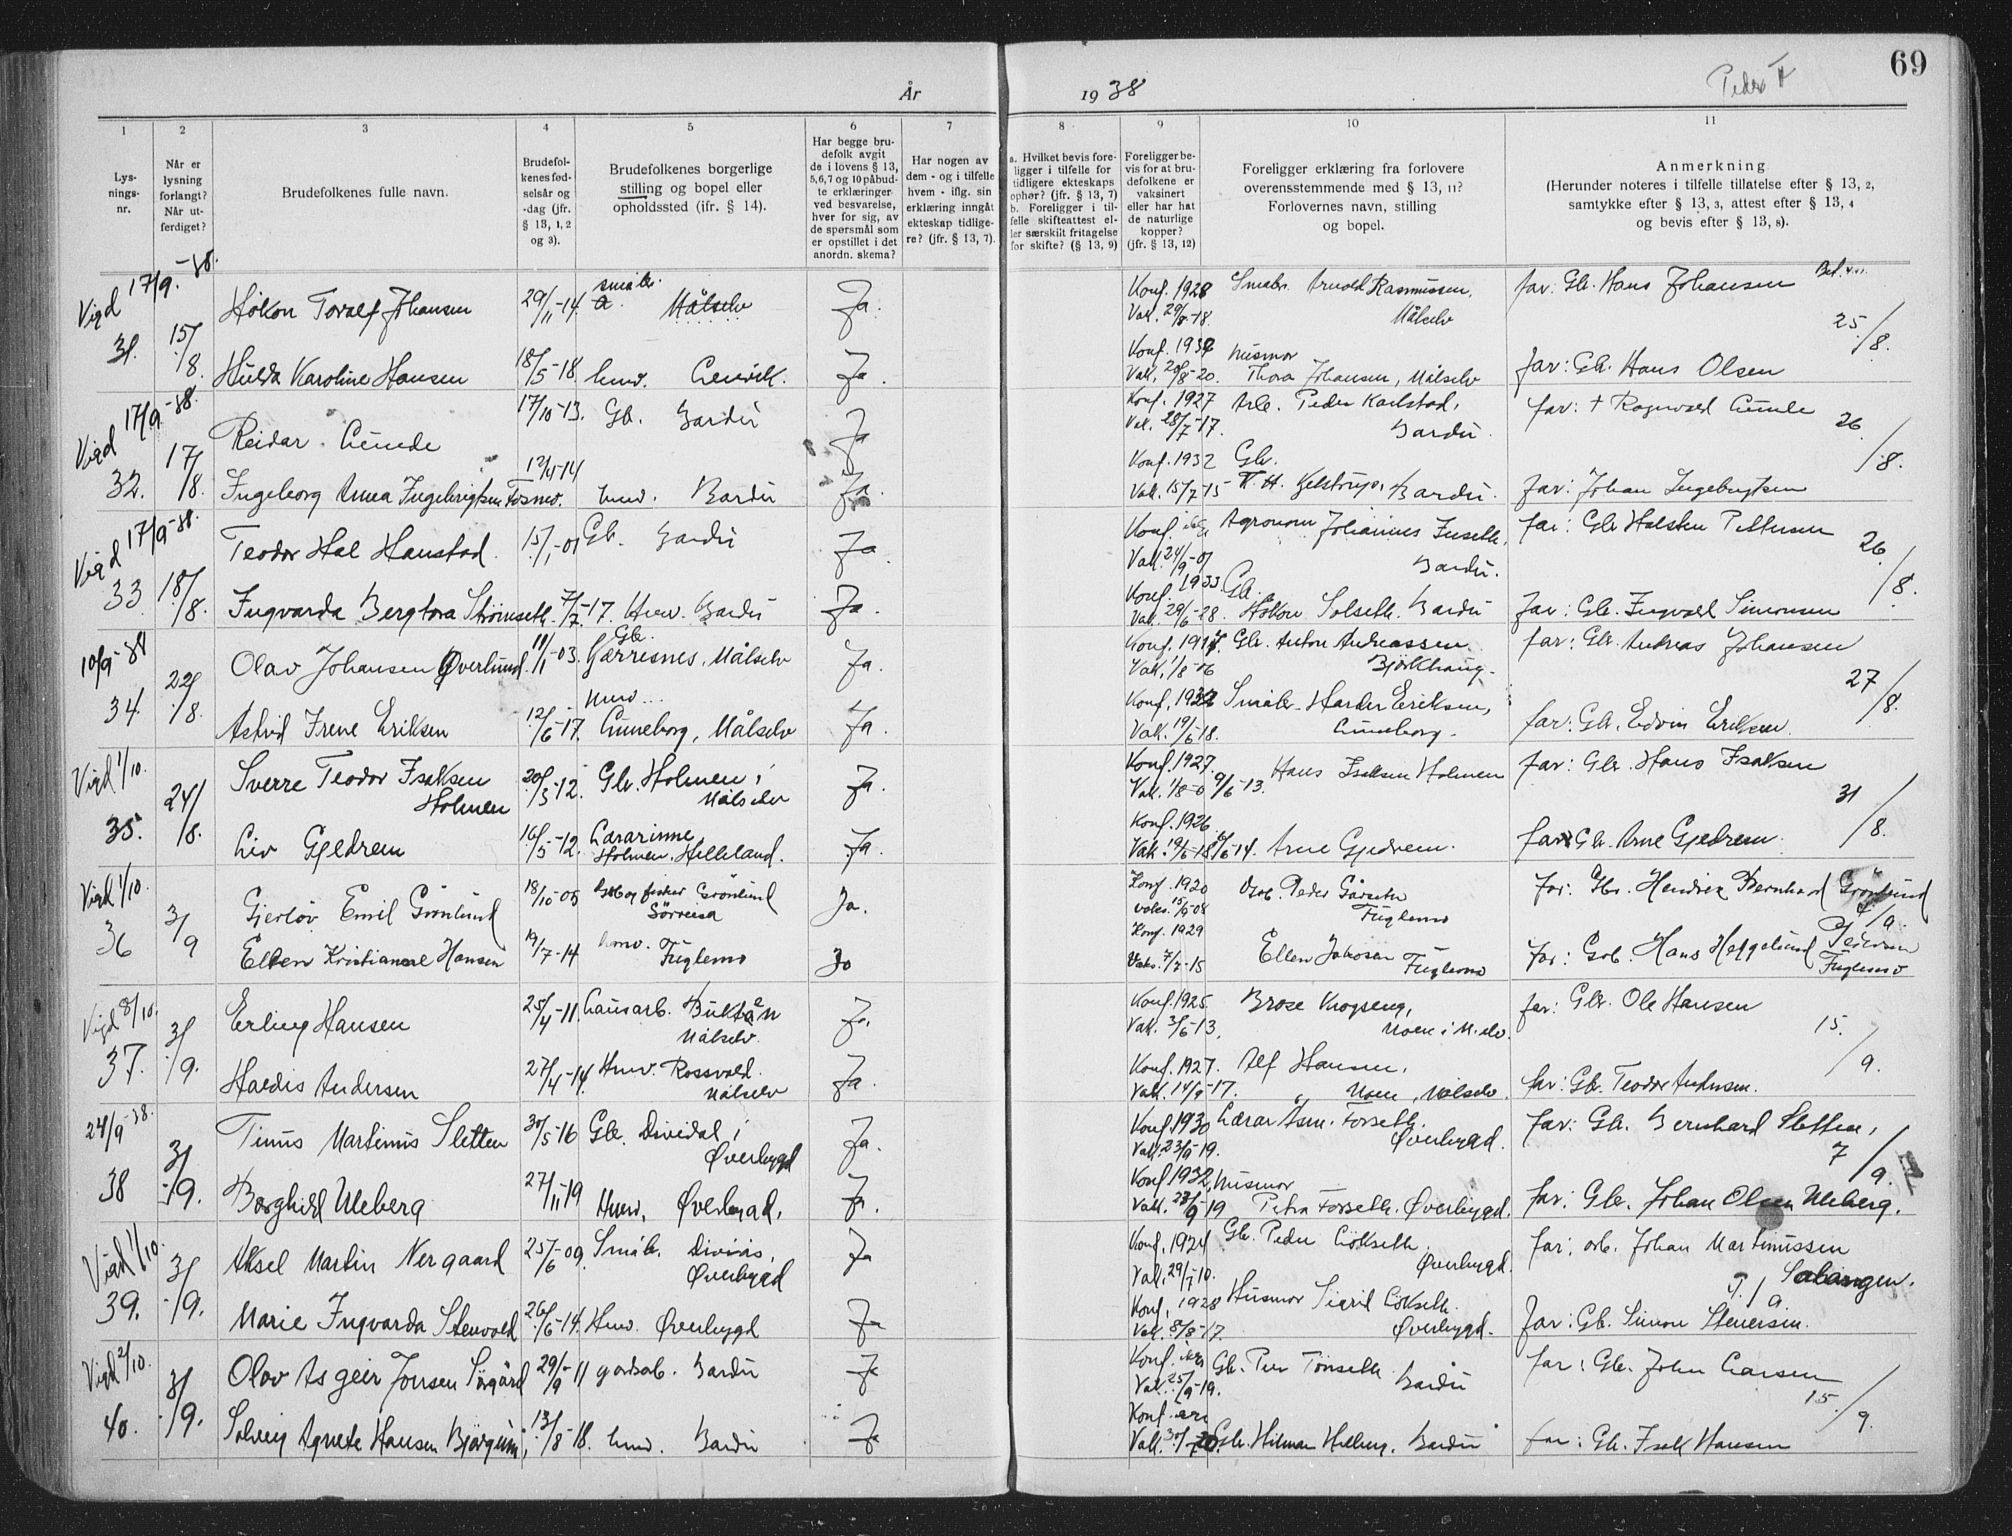 69
Peder H
År 1938
1 2 3 4 5 6 7 8 9 10 11
Lys-
nings-
nr.
Når er
lysning
forlangt?
Når ut-
ferdiget?
Brudefolkenes fulle navn.
Brudefol-
kenes fød-
selsår og
-dag (jfr.
§ 13, 1, 2
og 3).
Brudefolkenes borgerlige
stilling og bopel eller
opholdssted (ifr. § 14).
Har begge bru-
defolk avgit
de i lovens § 13,
5,6,7 og 10 påbud-
te erklæringer
ved besvarelse,
hver for sig, av
de spørsmål som
er opstillet i det
anordn. skema?
Har nogen av
dem - og i tilfelle
hvem - iflg. sin
erklæring inngåt
ekteskap tidlige-
re? (jfr. § 13, 7).
a. Hvilket bevis fore-
ligger i tilfelle for
tidligere ekteskaps
ophør? (jfr. § 13, 7)
b. Foreligger i til-
felle skifteattest el-
ler særskilt fritagelse
for skifte? (§ 13, 9)
Foreligger be-
vis for at bru-
defolkene er
vaksinert
eller har hat
de naturlige
kopper?
(jfr. § 13, 12)
Foreligger erklæring fra forlovere
overensstemmende med § 13, 11?
Forlovernes navn, stilling
og bopel.
Anmerkning
(Herunder noteres i tilfelle tillatelse efter § 13, 2,
samtykke efter § 13, 3, attest efter § 13, 4
og bevis efter § 13, 8).
Vigd 17/9.-38.
31. 15/8. Håkon Toralf Johansen 29/11-14. småbr. Målselv Ja. Konf. 1928 Vak. 29/8-18. Småbr. Arnold Rasmussen, Målselv far: Gbr. Hans Johansen
25/8.
Hulda Karoline Hansen 18/5-18. hmv. Lenvik. Ja. Konf. 1932 Vak. 20/8-20. husmor Thora Johansen, Målselv far: Gb. Hans Olsen
Vigd 17/9-38.
32. 17/8. Reidar Lunde 17/10-13. Gb. Bardu Ja Konf. 1927 Vak. 28/7-17. Arb. Peder Karlstad, Bardu. far: † Ragnvald Lunde
26/8.
Ingeborg Anea Ingebrigtsen Fosmo. 12/4-14 hmv. Bardu Ja. Konf. 1932 Vak. 15/7-15 Gbr. Kjelstrup, Bardu. far: Johan Ingebrigtsen
Vigd 17/9-38.
33 18/8. Teodor Hal Hanstad. 15/1-01 Gb. Bardu Ja. Konf. Vak. 24/9-01 Agronom Johannes Fuseth, Bardu. far: Gbr Halsten Pettersen
26/8.
Ingvarda Bergtora Strømseth. 7/7-17. Hmv. Bardu Ja. Konf. 1933 Vak. 29/6-28. Gb. Håkon Solseth. Bardu far: Gb. Ingvald Simonsen
10/9-38
34. 22/8. Olav Johansen Øverlund. 11/1-03. Gbr. Kjerresnes, Målselv Ja. Konf. 1917 Vak. 1/8-06 Gbr. Anton Andreassen Bjørkhaug. far: Gbr. Andreas Johansen
27/8.
Astrid Irene Eriksen 12/6-17. hmv. Lunneborg, Målselv Ja. Konf. 1932 Vak. 19/6-18. Småbr. Harder Eriksen, Lunneborg. far: Gbr. Edvin Eriksen.
Vigd 1/10.
35. 24/8. Sverre Teodor Isaksen Holmen 20/3-12. Gbr. Holmen, Målselv Ja. Konf. 1927. Vak. 9/6-13. Hans Isaksen Holmen far: Gbr. Hans Isaksen
31/8.
Liv Gjedrem 16/5-12. Lærarinne Holmen, Helleland. Ja. Konf. 1926. Vak. 6/6-14. Arne Gjedrem. far: Gbr. Arne Gjedrem.
Vigd 1/10.
36 3/9 Gjerløv Emil Grønlund 18/10-05 Gbr og fisker Grønlund Sørreisa Ja. Konf. 1920 vaks. 15/9-08 Gb. Peder Gårseth Fuglemo far: Gbr. Hendrik Bernhard Grønlund
7/9.
Ellen Kristianne Hansen 19/7-14 hmv. Fuglemo Ja Konf. 1929 Vaks. 7/7-15 Ellen Jakobsen Fuglemo far: Gb. Hans Heggelund Pedersen Fuglemo
Vigd 8/10.
37. 3/9. Erling Hansen 25/4-11. Lausarb. Buktån Målselv. Ja. Konf. 1925. Vak. 3/6-13. Brose Krogseng, Moen i M.elv. far: Gbr. Ole Hansen
15./9.
Haldis Andersen 27/4-14. Hmv. Rossvold. Målselv Ja. Konf. 1927. Vak. 14/9-17. Alf Hansen, Moen, Målselv. far: Gb. Teodor Andersen.
24/9-38.
38 3/9. Tinus Martinus Sletten 30/5-16 Gb. Dividal, Øverbygd Ja. Konf. 1930 Vak. 23/9-19. Lærar Asm. Forseth. Øverbygd. far: Gb. Bernhard Sletten,
7/9.
Borghild Uleberg 27/11-19 Hmv. Øverbygd. Ja. Konf. 1932, Vak. 23/9-19 Husmor Petra Forseth. Øverbygd. far: Gbr. Johan Olsen Uleberg.
Vigd 1/10.
39. 3/9. Aksel Martin Nergaard 25/6-09. Småbr. Divinäs, Øverbygd Ja Konf. 1924 Vak. 29/7-10. Gb. Peder Løkseth Øverbygd. far: arb. Johan Martinussen Salangen.
Marie Ingvarda Stenvold 26/6-14. Hmv. Øverbygd Ja Konf. 1928 Vak. 8/8-17. Husmor Sigrid Løkseth. Øverbygd. far: Gb. Simon Stenersen.
Vigd 2/10.
40. 3/9. Olav Asgeir Jonsen Sørgård 29/9-11 gardsarb. Bardu Ja Konf. Vak. 25/9-19. Gb. Peer Tønseth Bardu far: Gbr. John Larsen
15./9.
Solveig Agnete Hansen Bjørgum, 13/8-18. hmv. Bardu Ja Konf. Vak. 30/7-20. Gbr. Hilmar Helberg, Bardu far: Gb. Isak Hansen